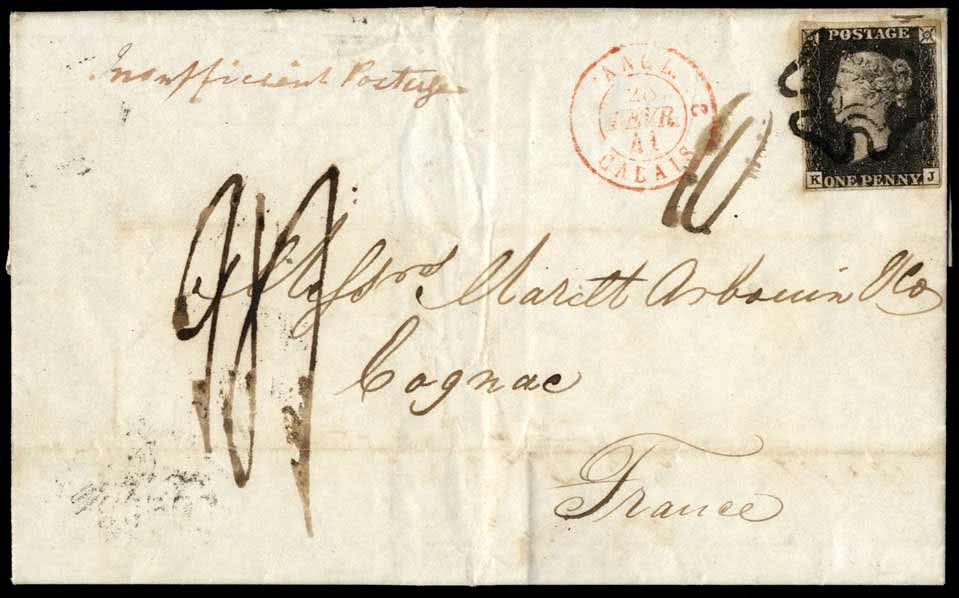 POSTAGE
Insufficient Postage
ANGL. 2
28
FEVR.
41
CALAIS
10
K ONE PENNY J
Messrs Marett Arbouin & Co
Cognac
France